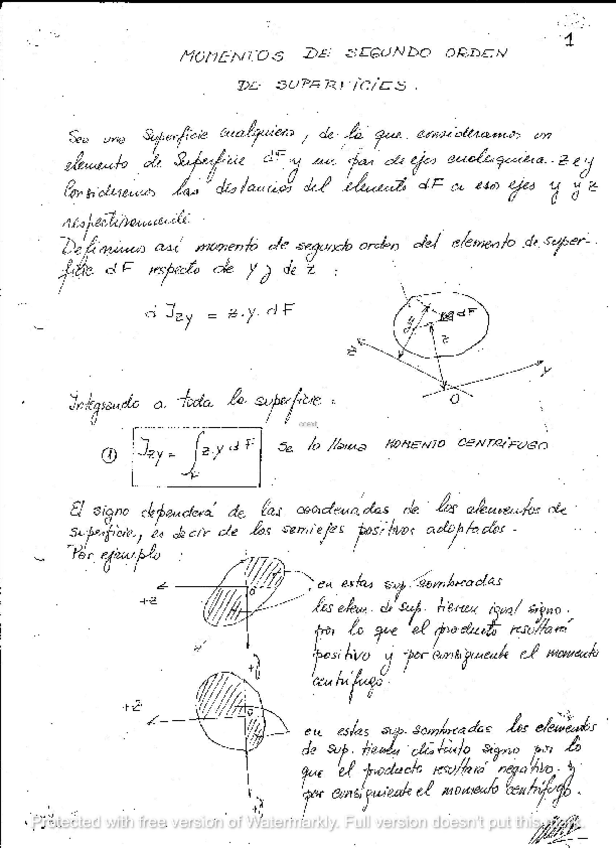 1
MOMENTOS DE SEGUNDO ORDEN
DE SUPERFICIES.
Sea una Superficie cualquiera, de la que consideramos un
elemento de Superficie dF y un par de ejes cualesquiera z e y
Consideremos las distancias del elemento dF a esos ejes y y z
respectivamente.
Definimos así momento de segundo orden del elemento de super-
ficie dF respecto de y y de z :
d Jzy = z.y.dF
y
dF
z
z
y
O
Integrando a toda la superficie :
① Jzy = ∫F z.y dF Se lo llama MOMENTO CENTRÍFUGO
El signo dependerá de las coordenadas de los elementos de
superficie, es decir de los semiejes positivos adoptados.
Por ejemplo :
+z
O
+y
en estas sup. sombreadas
los elem. de sup. tienen igual signo.
por lo que el producto resultará
positivo y por consiguiente el momento
centrífugo.
+z
O
+y
en estas sup. sombreadas los elementos
de sup. tienen distinto signo por lo
que el producto resultará negativo. y
por consiguiente el momento centrífugo.
Protected with free version of Watermarkly. Full version doesn't put this mark.